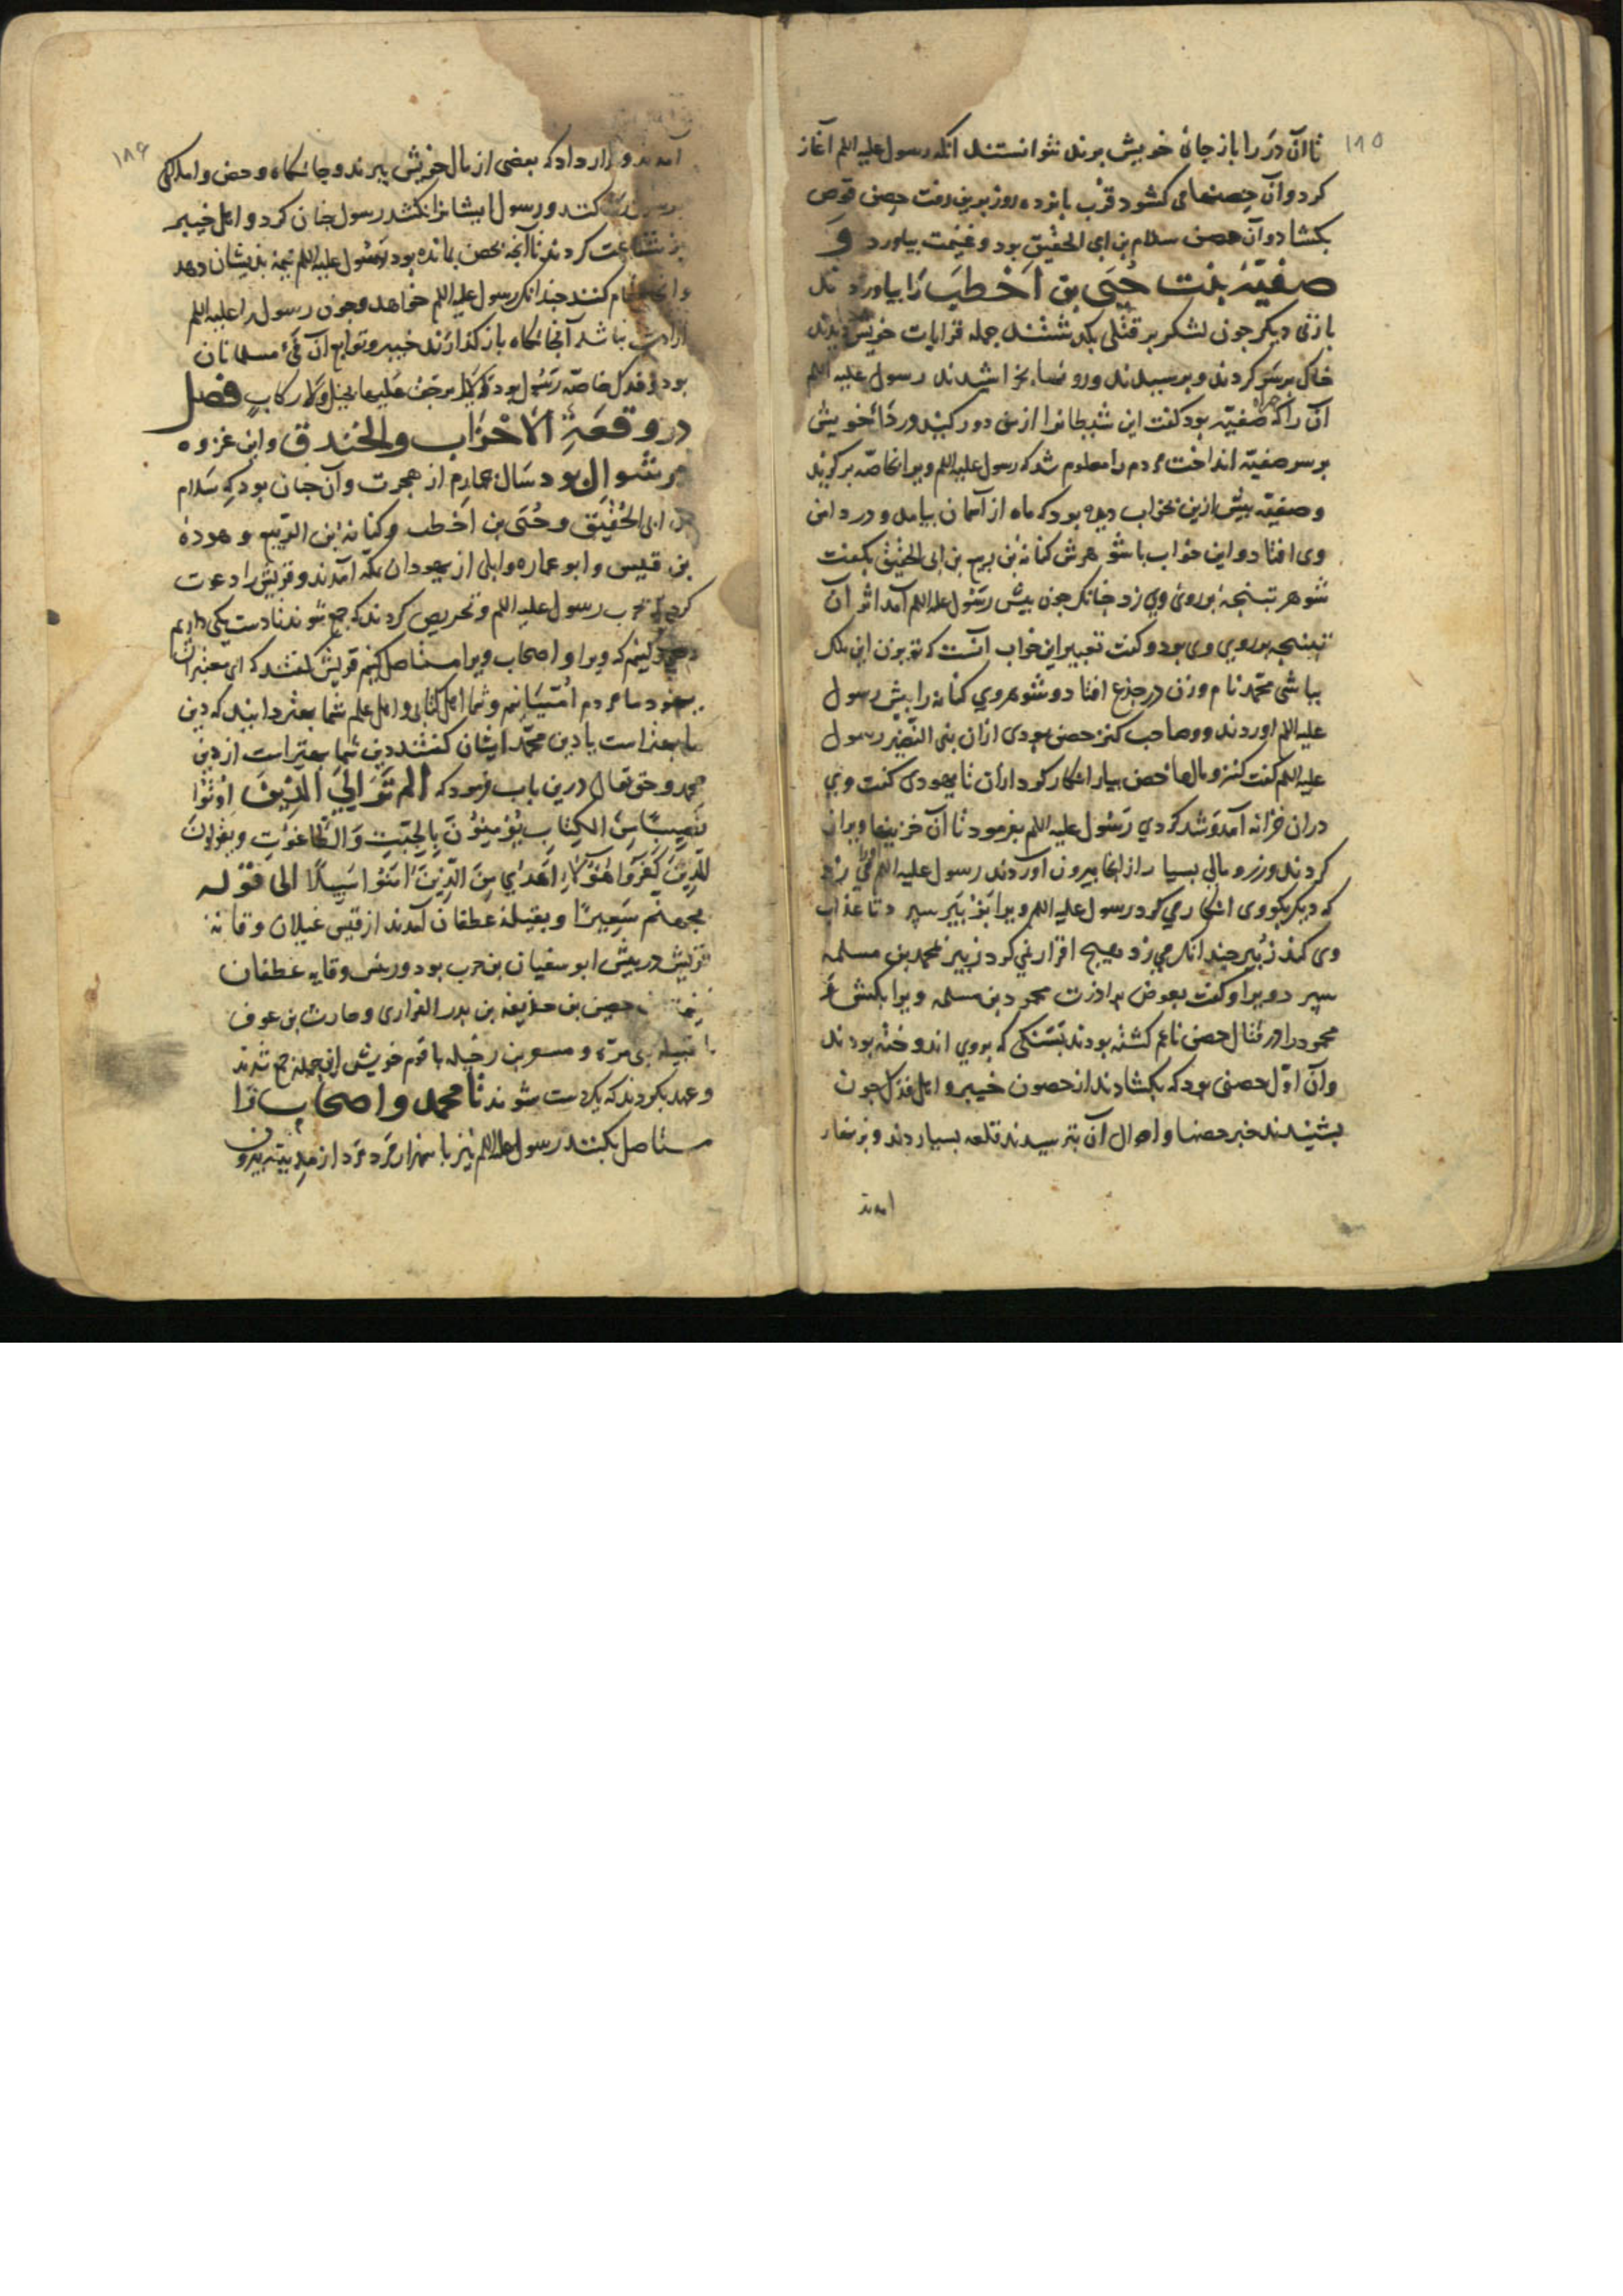 ۱۸۵
تا آن در را باز جای خویش برند نتوانستند انکه رسول علیه اللم آغاز
کرد و آن حصنهای کشود قرب بانزده روز برین رفت حصن قوص
بکشاد و آن حصن سلام بن ابی الحقیق بود و غنیمت بیاورد و
صفیّه بنت حُیَی بن اَخْطَبَ را بیاوردند
بازنی دیکر جون لشکر بر قتلی بکذشتند جمله قرابات خویش دیدند
خاک برسر کردند و برسیدند و رویها بخراشیدند رسول علیه اللم
آن را که همراه صفیّه بود کفت این شیطانرا از من دور کنید و ردائ خویش
بر سر صفیّه انداخت مردم را معلوم شد که رسول علیه اللم ویرا خاصّه برکزید
و صفیّه بیش ازین بخواب دیده بود که ماه از آسمان بیامد و در دامن
وی افتاد و این خواب با شوهرش کنانة بن ربیع بن ابی الحقیق بکفت
شوهر تبنجه بر روی وی زد جنانکه جون بیش رسول علیه اللم آمد اثر آن
تبنجه بر روی وی بود و کفت تعبیر این خواب آنست که تو زن این ملک
باشی محمّد نام و زن در جذع افتاد و شوهر وی کنانه را بیش رسول
علیه اللم اوردند و صاحب کنز حصن بودی ازان بنی النّضیر رسول
علیه اللم کفت کنز و مالها حصن بیار انکار کرد ازان تا یهودی کفت وی
دران خزانه آمد و شد کردی رسول علیه اللم بفرمود تا آن خزینها ویران
کردند و زر و مالی بسیار از انجا بیرون آوردند رسول علیه اللم
که دیکر بکو وی انکار می کرد رسول علیه اللم ویرا بزبیر سبرد تا عذاب
وی کند زُبیر جندانک می زد هیج اقرار نمی کرد زبیر بمحمد بن مسلمه
سبرد ویرا و کفت بعوض برادرت محمود بن مسلمه ویرا بکش
محمود را در قتال حصن ناعم کشته بودند بسنکی که بروی انداخته بودند
و آن اوّل حصنی بود که بکشادند از حصون خیبر و اهل فدک جون
بشنیدند خبر حصنها و احوال آن بترسیدند قلعه بسباردند و بزنهار
امدند
۱۸۶
آمدند و قرار داد که بعضی از مال خویش ببرند و جایکاه و حصن و املاک
کنند و رسول ایشانرا نکشد رسول جنان کرد و اهل خیبر
شفاعت کردند تا آنجه بحصن مانده بود رسول علیه اللم نیمه بذیشان دهد
کنند جندانک رسول علیه اللم خواهد و جون رسول را علیه اللم
ارادت نباشد آنجایکاه باز کذارند خیبر و توابع آن فئ مسلمانان
بود و فدک خاصّه رسول بود که لم یرجف علیها بخیل و لا رکاب فصل
در وقعة الاحزاب والخندق و این غزوه
در شوال بود سال جهارم از هجرت و آن جنان بود که سلام
بن ابی الحُقَیق و حُیَی بن اخطب و کنانه ابن الربیع و هوذة
بن قیس و ابو عماره وایلی از یهودان بمکه آمدند و قریش را دعوت
کردند بحرب رسول علیه اللم و تحریص کردند که جمع شوند تا دست یکی داریم
و جهد کنیم که ویرا و اصحاب ویرا مستاصل کنیم قریش کفتند که ای معشر
یهود ما مردم اُمّتیانیم و شما اهل کتاب و اهل علم شما بهتر دانید که دین
ما بهتر است یا دین محمّد ایشان کفتند دین شما بهتر است از دین
محمد و حق تعالی درین باب فرمود که اَلَم تَرَ اِلَی الَّذِینَ اُوتُوا
نَصِیبًا مِنَ الکِتابِ یُؤمِنُونَ بِالجِبتِ وَالطّاغُوتِ وَیَقُولُونَ
لِلَّذِینَ کَفَرُوا هٰؤُلاءِ اَهدٰی مِنَ الَّذِینَ اٰمَنُوا سَبِیلًا الی قوله
بجهنم سَعِیرًا و بقبیلة غطفان آمدند از قیس غیلان و قاید
قریش ابو سفیان بن حرب بود و رئیس و قاید غطفان
حصین بن حذیفه بن بدر الفزاری و حارث بن عوف
با قبیله بنی مرّه و مسعر بن رخیله با قوم خویش این جمله جمع شدند
و عهد بکردند که یکدست شوند تا محمد و اصحاب را
مستاصل بکنند رسول علیه اللم نیز با سه هزار مرد از مدینه بیرون